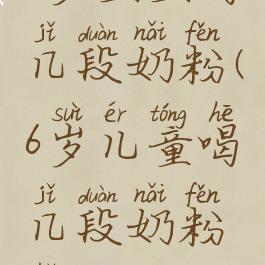 jǐ duàn nǎi fěn
几段奶粉(
suì ér tóng hē
6岁儿童喝
jǐ duàn nǎi fěn
几段奶粉